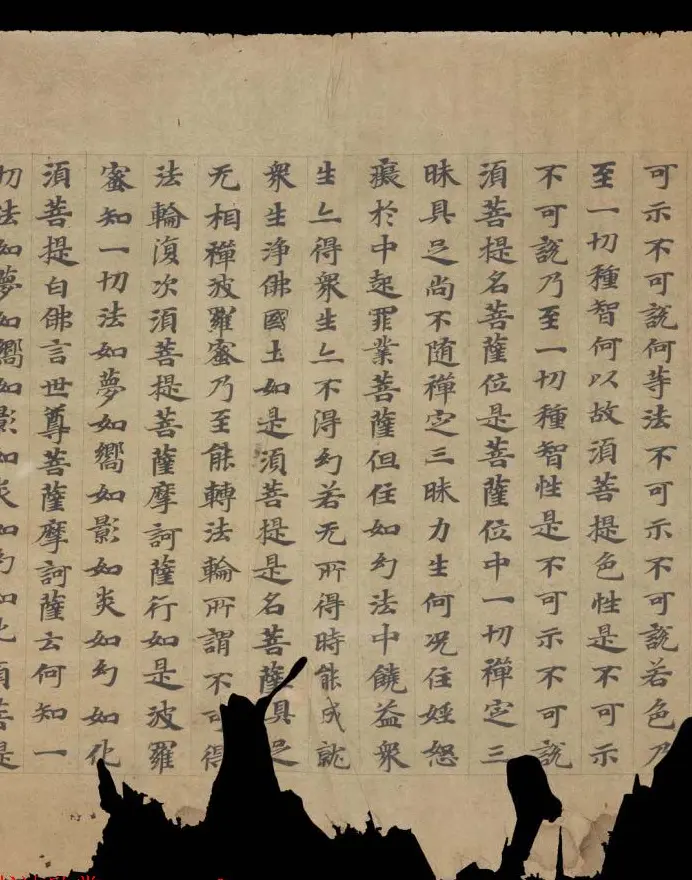 可示不可說何等法不可示不可說若色乃
至一切種智何以故須菩提色性是不可示
不可說乃至一切種智性是不可示不可說
須菩提名菩薩位是菩薩位中一切禪定三
昧具足尚不随禪定三昧力生何況住婬怒
癡於中起罪業菩薩但住如幻法中饒益衆
生亦得衆生亦不得幻若无所得時能成就
衆生浄佛國土如是須菩提是名菩薩具足
无相禪波羅蜜乃至能轉法輪所謂不可得
法輪復次須菩提菩薩摩訶薩行如是波羅
蜜知一切法如夢如嚮如影如炎如幻如化
須菩提白佛言世尊菩薩摩訶薩云何知一
切法如夢如嚮如影如炎如幻如化須菩是